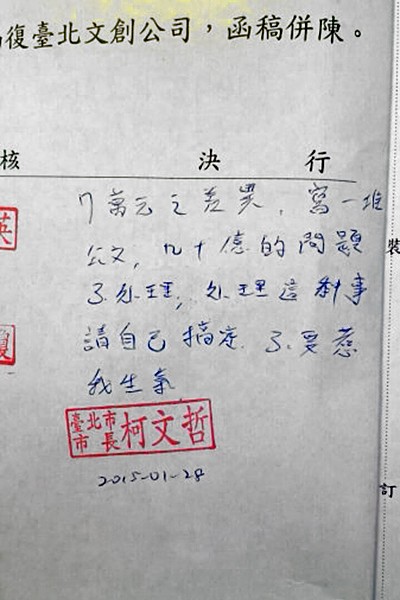 復臺北文創公司，函稿併陳。
核 決 行
7萬元之差異，寫一堆
公文，九十億的問題
不处理，处理這 事
請自己搞定，不要惹
我生氣
臺北市市長柯文哲
2015-01-28
英
裝
訂